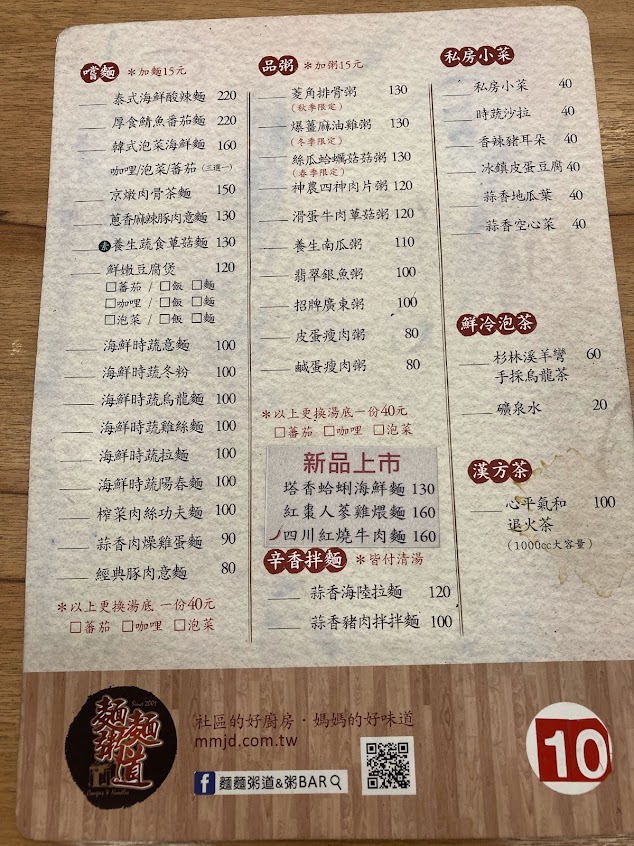 嚐麵 *加麵15元
泰式海鮮酸辣麵 220
厚食鯖魚番茄麵 220
韓式泡菜海鮮麵 160
咖哩/泡菜/蕃茄 (三選一)
京燉肉骨茶麵 150
蔥香麻辣豚肉意麵 130
素 養生蔬食蕈菇麵 130
鮮嫩豆腐煲 120
□蕃茄 / □飯 □麵
□咖哩 / □飯 □麵
□泡菜 / □飯 □麵
海鮮時蔬意麵 100
海鮮時蔬冬粉 100
海鮮時蔬烏龍麵 100
海鮮時蔬雞絲麵 100
海鮮時蔬拉麵 100
海鮮時蔬陽春麵 100
榨菜肉絲功夫麵 100
蒜香肉燥雞蛋麵 90
經典豚肉意麵 80
*以上更換湯底 一份40元
□蕃茄 □咖哩 □泡菜
品粥 *加粥15元
菱角排骨粥 130
(秋季限定)
爆薑麻油雞粥 130
(冬季限定)
絲瓜蛤蠣菇菇粥 130
(春季限定)
神農四神肉片粥 120
滑蛋牛肉蕈菇粥 120
養生南瓜粥 110
翡翠銀魚粥 100
招牌廣東粥 100
皮蛋瘦肉粥 80
鹹蛋瘦肉粥 80
*以上更換湯底一份40元
□蕃茄 □咖哩 □泡菜
新品上市
塔香蛤蜊海鮮麵 130
紅棗人蔘雞煨麵 160
四川紅燒牛肉麵 160
辛香拌麵 *皆付清湯
蒜香海陸拉麵 120
蒜香豬肉拌拌麵 100
私房小菜
私房小菜 40
時蔬沙拉 40
香辣豬耳朵 40
冰鎮皮蛋豆腐 40
蒜香地瓜葉 40
蒜香空心菜 40
鮮冷泡茶
杉林溪羊彎 60
手採烏龍茶
礦泉水 20
漢方茶
心平氣和 100
退火茶
(1000cc大容量)
Since 2001
麵麵粥道
Congee & Noodles
社區的好廚房·媽媽的好味道
mmjd.com.tw
f 麵麵粥道&粥BAR
10